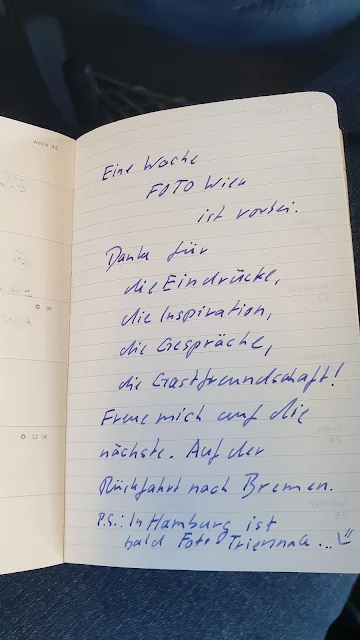 week 46
Eine Woche
FOTO Wien
ist vorbei.
Danke für
die Eindrücke,
die Inspiration,
die Gespräche,
die Gastfreundschaft!
Freue mich auf die
nächste. Auf der
Rückfahrt nach Bremen.
P.S.: In Hamburg ist
bald Foto Triennale...